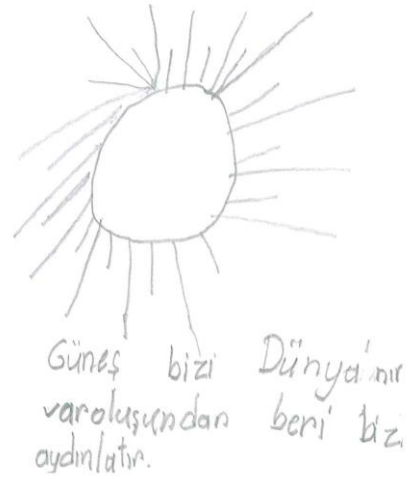 Güneş bizi Dünya'nın
varoluşundan beri bizi
aydınlatır.